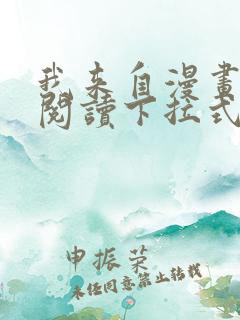 我来自漫畫
閱讀下拉式
申振荣
未任同意禁止转载